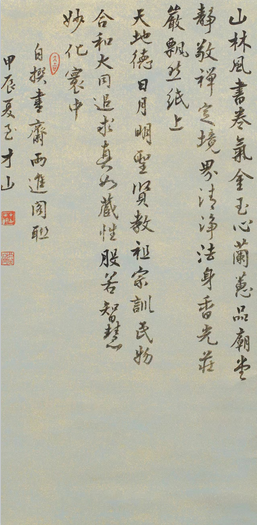 山林風書卷氣金玉心蘭蕙品廟堂
靜敬禪定境界清淨法身香光莊
嚴飄然紙上
天地德日月明聖賢教祖宗訓民物
合和大同追求真如藏性般若智慧
妙化寰中
自撰書齋兩進閣聯
甲辰夏 才山